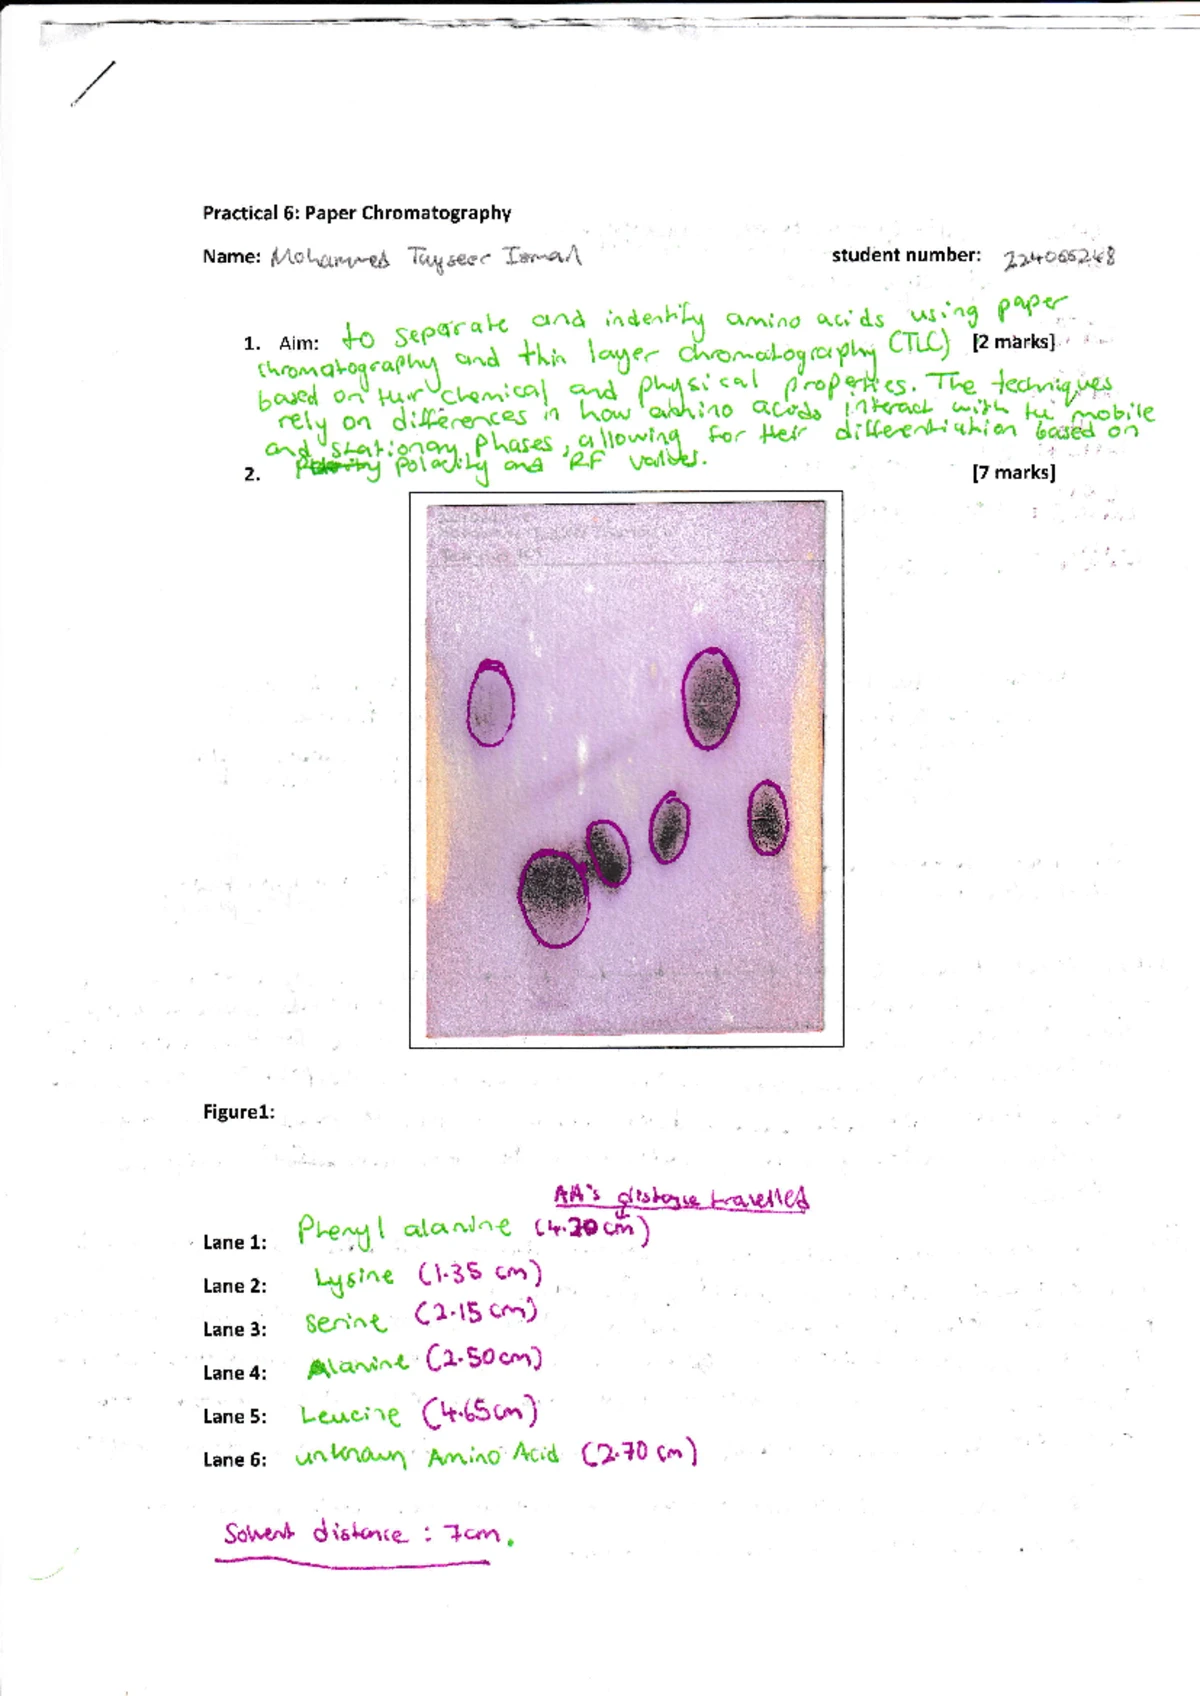 Practical 6: Paper Chromatography
Name: Mohammed Tayseer Ismail student number: 224065248
1. Aim: to separate and indentify amino acids using paper [2 marks]
chromatography and thin layer chromatography (TLC)
based on their chemical and physical properties. The techniques
rely on differences in how amino acids interact with the mobile
and stationary phases, allowing for their differentiation based on
polarity and RF values.
2. [7 marks]
Figure1:
AA's distance travelled
Lane 1: Phenyl alanine (4.70cm)
Lane 2: Lysine (1.35 cm)
Lane 3: Serine (2.15 cm)
Lane 4: Alanine (2.50cm)
Lane 5: Leucine (4.65cm)
Lane 6: unknown Amino Acid (2.70 cm)
Solvent distance : 7cm.